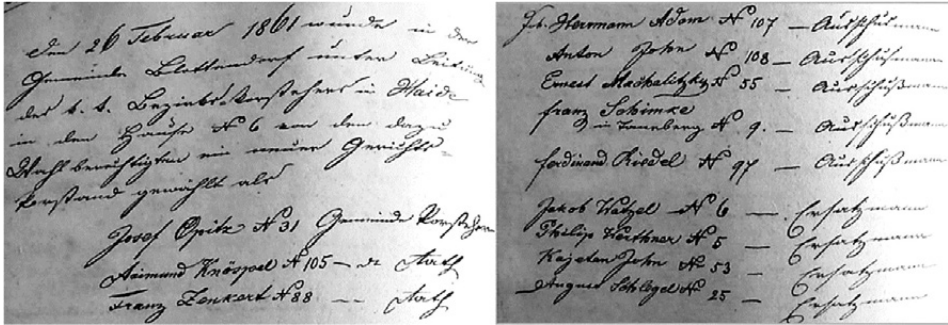 Den 26 Februar 1861 wurde in der
Gemeinde Blottendorf unter Leitung
des k. k. Bezirksvorstehers in Haida
in dem Hause N 6 von den dazu
Wahlberechtigten ein neuer Gerichts-
vorstand gewählt als
Josef Opitz N 31 Gemeinde Vorsteher
Raimund Knöspel N 105 — Rath
Franz Zenkert N 88 — Rath
Hermann Adam N 107 — Ausschußmann
Anton John N 108 — Ausschußmann
Ernest Machalitzky N 55 — Ausschußmann
Franz Schimke
in Tanneberg N 9. — Ausschußmann
Ferdinand Riedel N 97 — Ausschußmann
Jakob Watzel N 6 — Ersatzmann
Philip Werthner N 5 — Ersatzmann
Kajetan John N 53 — Ersatzmann
August Schlegel N 25 — Ersatzmann